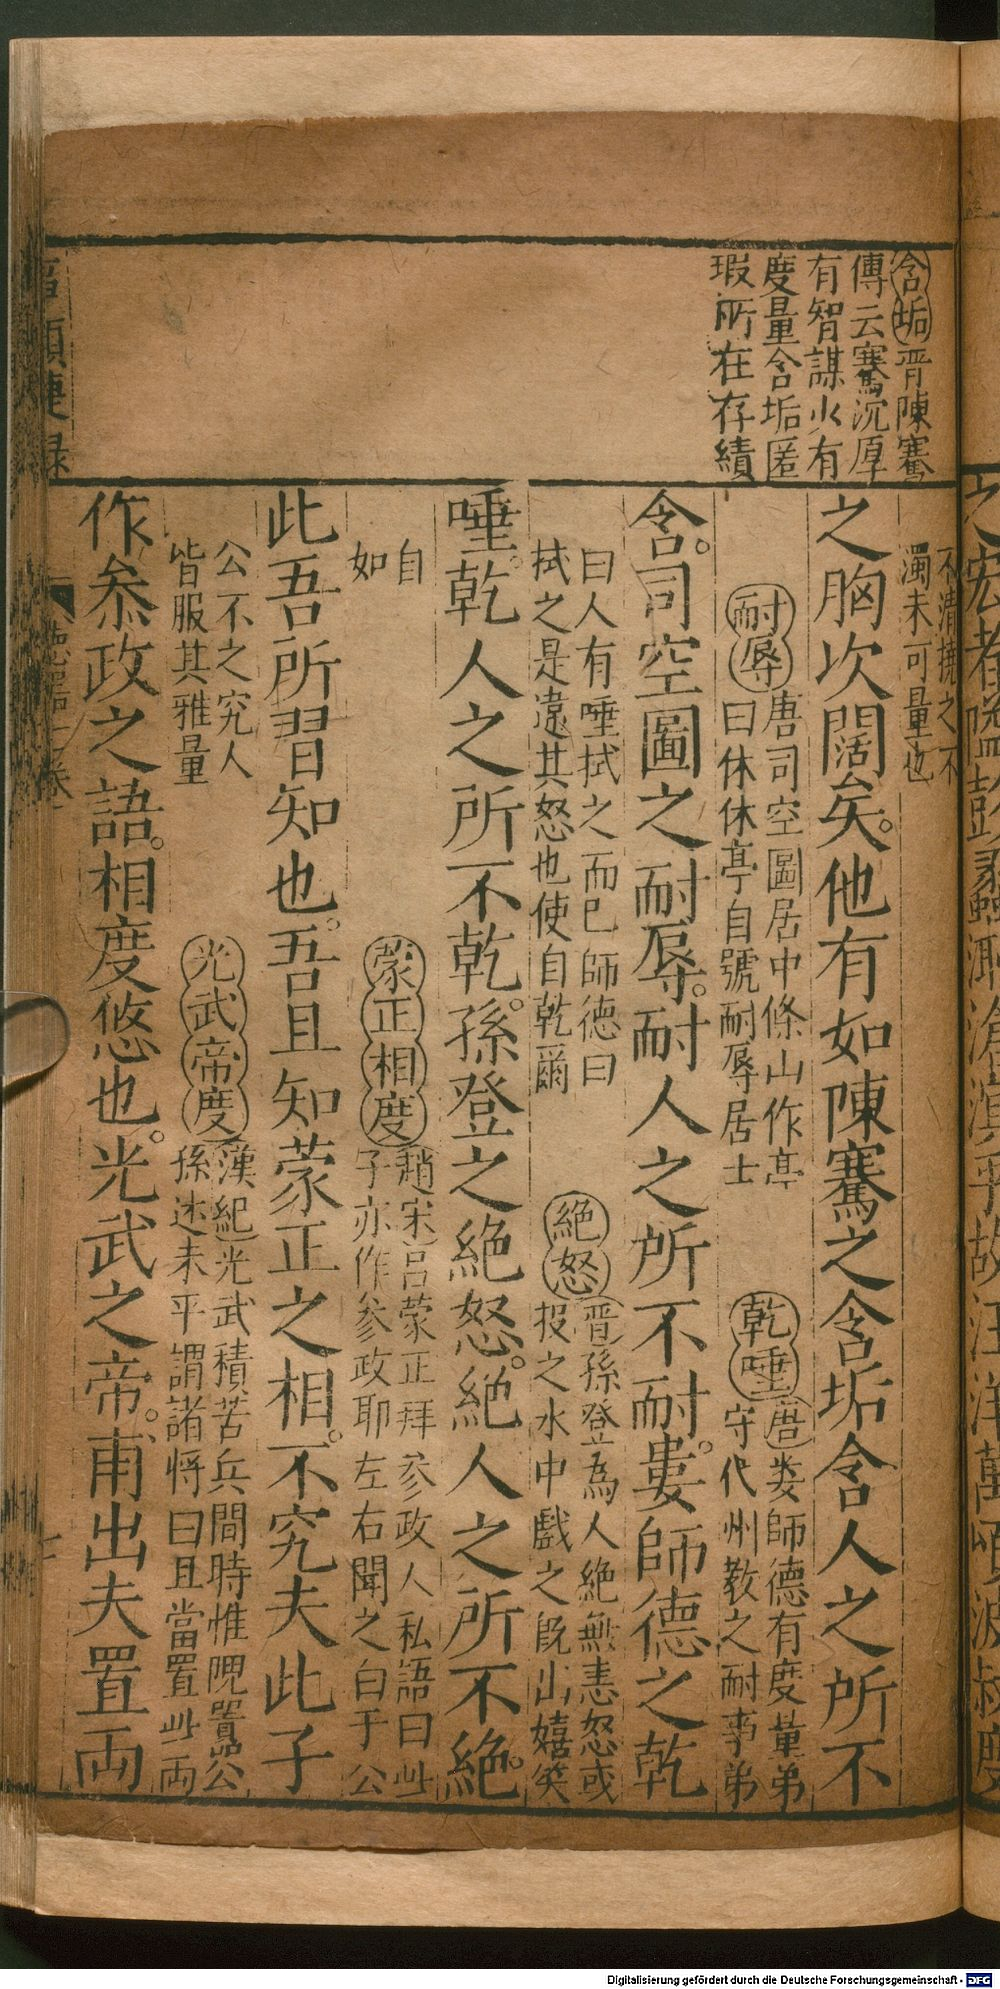 含垢晉陳騫
傳云騫沉厚
有智謀少有
度量含垢匿
瑕所在存績
不清撓之不
濁未可量也
之胸次闊矣。他有如陳騫之含垢含人之所不
耐辱唐司空圖居中條山作亭
曰休休亭自號耐辱居士
乾唾唐娄師德有度量弟
守代州教之耐事弟
含。司空圖之耐辱。耐人之所不耐。婁師德之乾
曰人有唾拭之而已師德曰
拭之是違其怒也使自乾爾
絕怒晉孫登為人絕無恚怒或
投之水中戲之既出嬉笑
唾。乾人之所不乾。孫登之絕怒。絕人之所不絕。
自
如
蒙正相度趙宋呂蒙正拜參政人私語曰此
子亦作參政耶左右聞之白于公
此吾所習知也。吾且知蒙正之相。不究夫此子
公不之究人
皆服其雅量
光武帝度漢紀光武積苦兵間時惟隗囂公
孫述未平謂諸將曰且當置此兩
作叅政之語。相度悠也。光武之帝。甫出夫置両
Digitalisierung gefördert durch die Deutsche Forschungsgemeinschaft - DFG